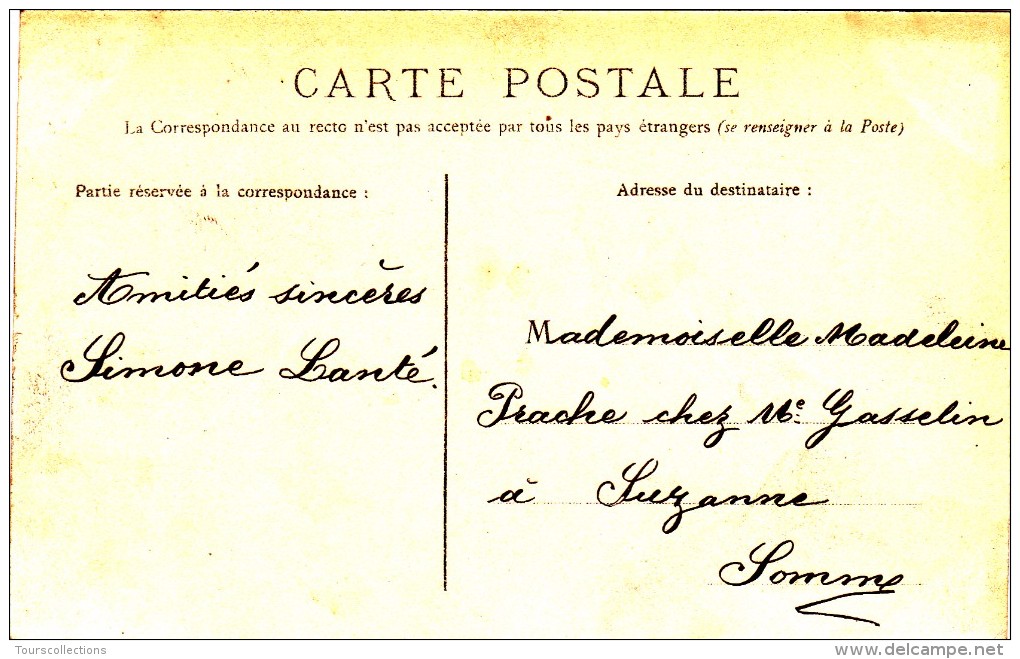 CARTE POSTALE
La Correspondance au recto n'est pas acceptée par tous les pays étrangers (se renseigner à la Poste)
Partie réservée à la correspondance :
Amitiés sincères
Simone Lanté.
Adresse du destinataire :
Mademoiselle Madeleine
Prache chez Me. Gasselin
à Suzanne
Somme
Tourscollections
www.delcampe.net